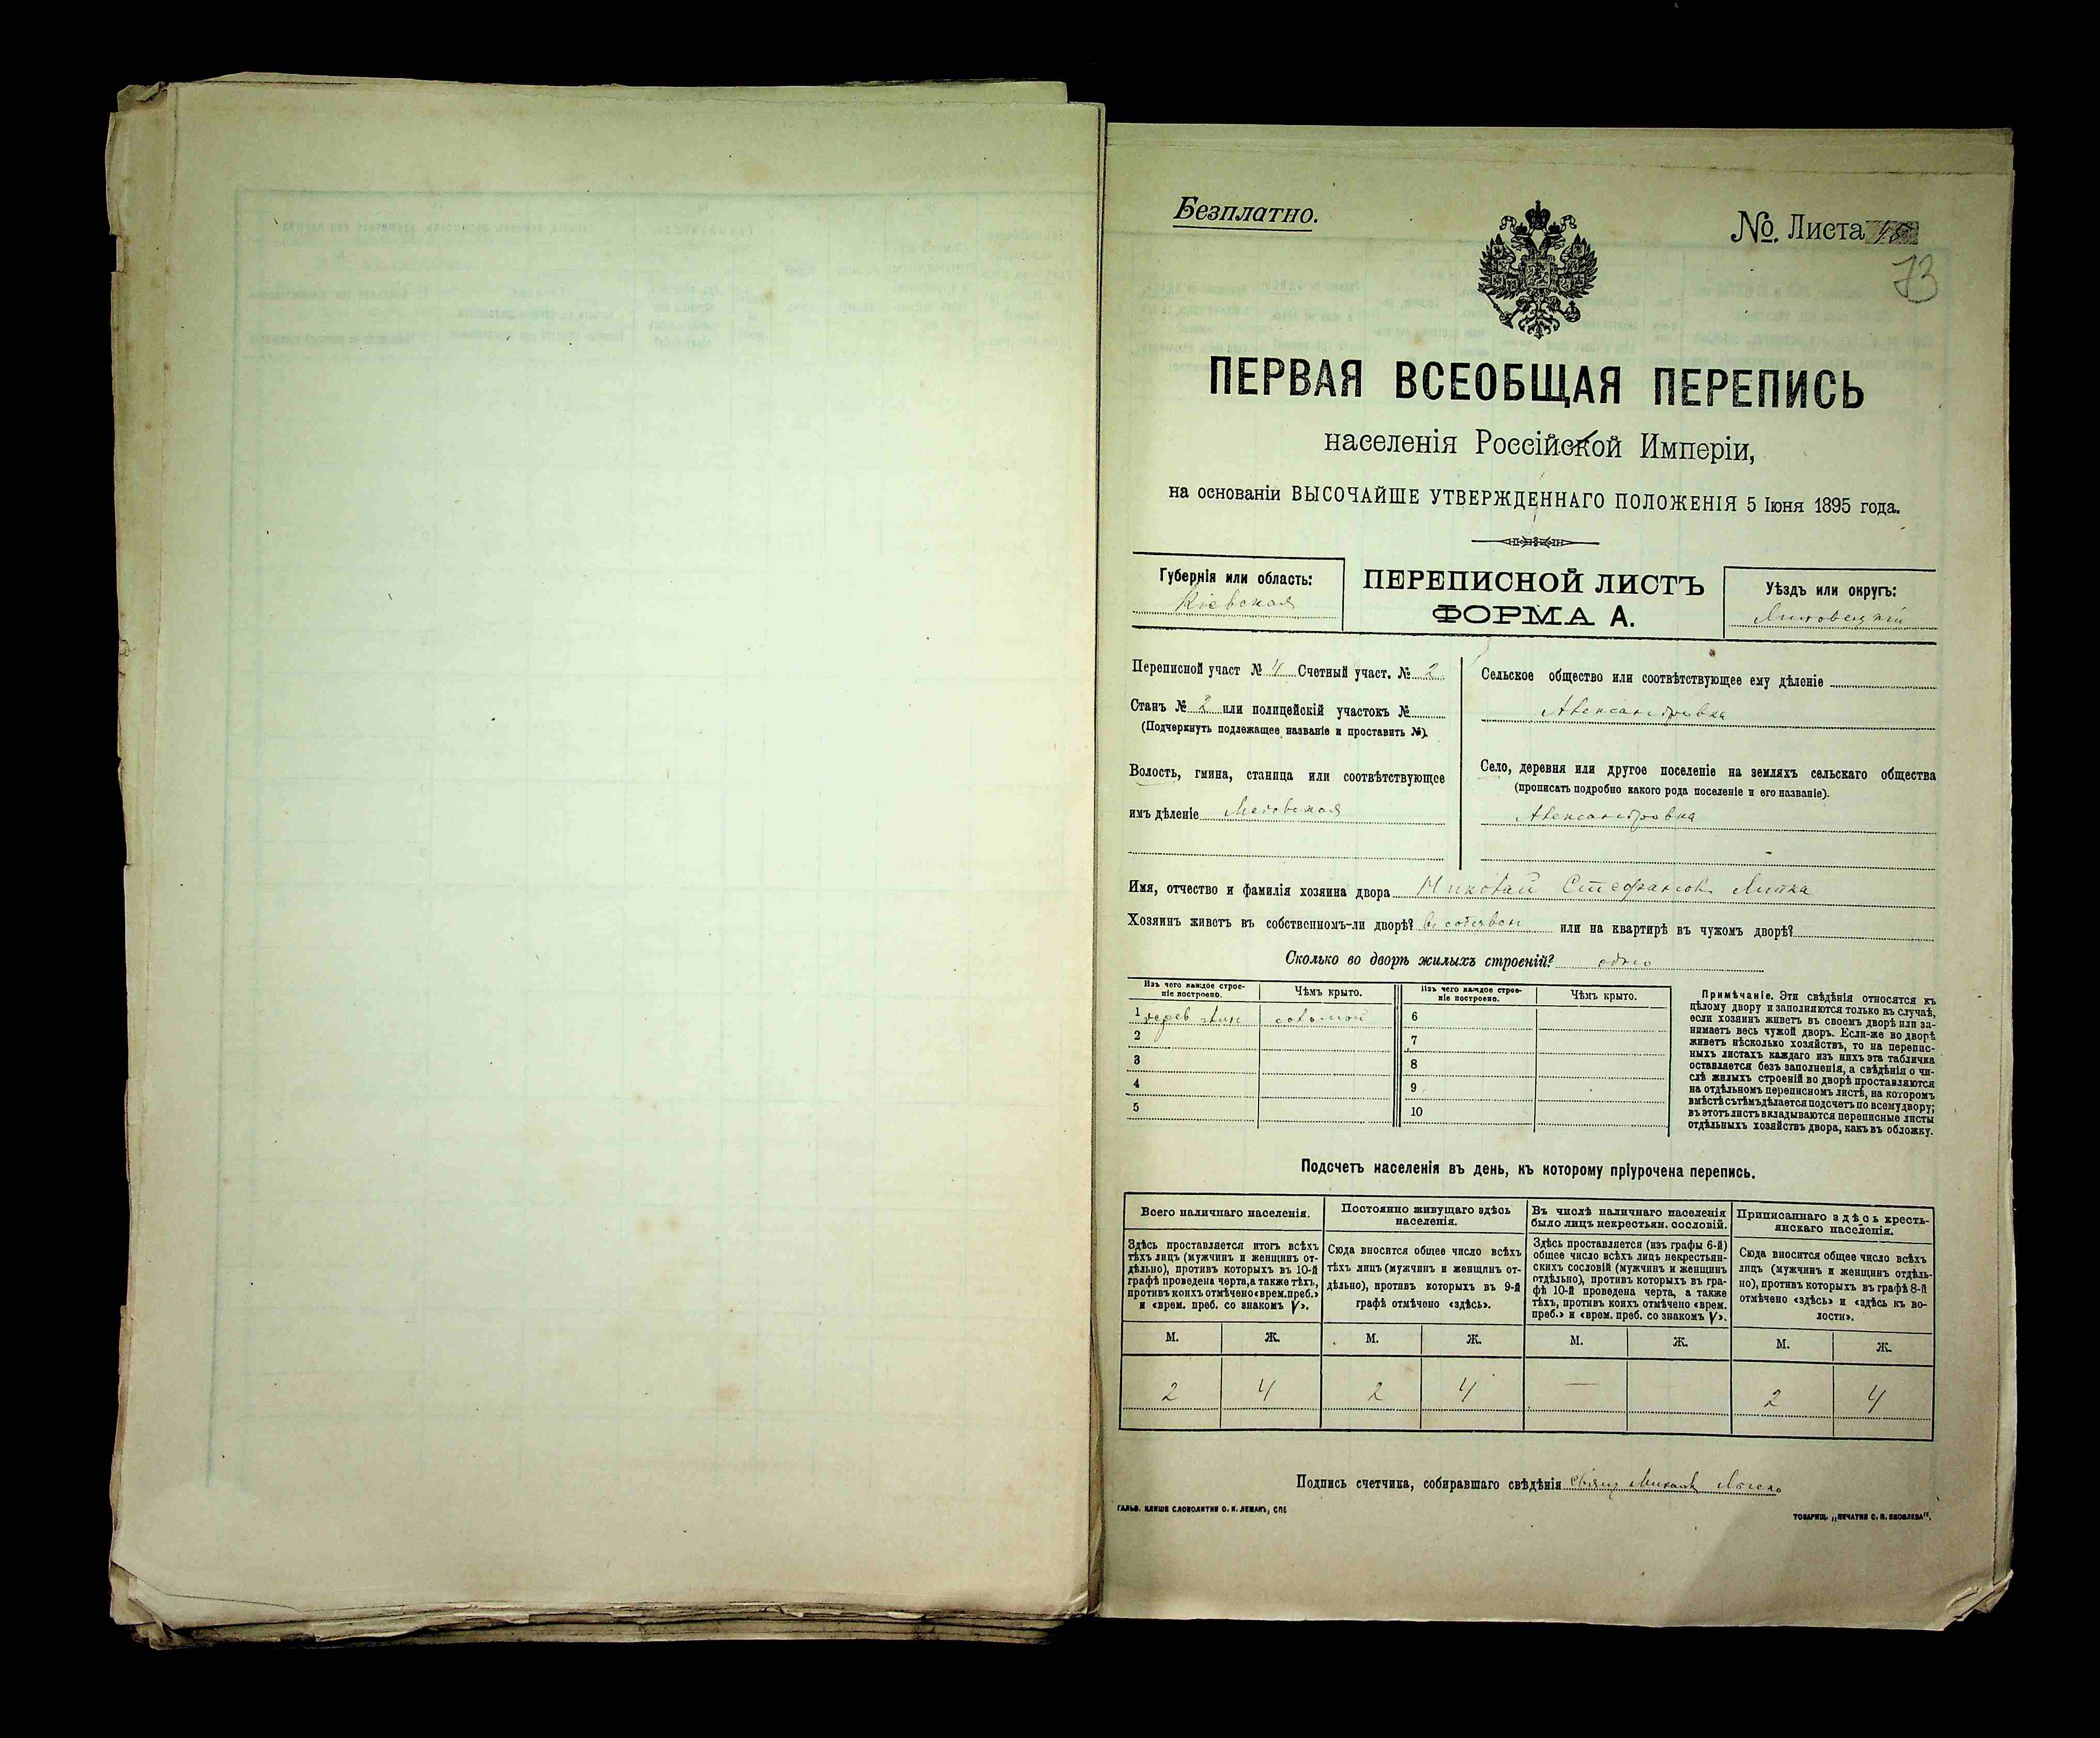 Безплатно.
№. Листа
73
ПЕРВАЯ ВСЕОБЩАЯ ПЕРЕПИСЬ
населенія Россійской Имперіи,
на основаніи ВЫСОЧАЙШЕ УТВЕРЖДЕННАГО ПОЛОЖЕНІЯ 5 Іюня 1895 года.
Губернія или область:
Кіевская
ПЕРЕПИСНОЙ ЛИСТЪ
ФОРМА А.
Уѣздъ или округъ:
Липовецкій
Переписной участ № 4 Счетный участ. № 2
Станъ № 2 или полицейскій участокъ №
(Подчеркнуть подлежащее названіе и проставить №).
Волость, гмина, станица или соотвѣтствующее
имъ дѣленіе
Сельское общество или соотвѣтствующее ему дѣленіе
Александровка
Село, деревня или другое поселеніе на земляхъ сельскаго общества
(прописать подробно какого рода поселеніе и его названіе).
Александровка
Имя, отчество и фамилія хозяина двора Николай Стефановъ
Хозяинъ живетъ въ собственномъ-ли дворѣ? или на квартирѣ въ чужомъ дворѣ?
Сколько во дворѣ жилыхъ строеній? одно
Изъ чего каждое строе-
ніе построено.
Чѣмъ крыто.
Изъ чего каждое строе-
ніе построено.
Чѣмъ крыто.
1 соломой 6
2 7
3 8
4 9
5 10
Примѣчаніе. Эти свѣдѣнія относятся къ
цѣлому двору и заполняются только въ случаѣ,
если хозяинъ живетъ въ своемъ дворѣ или за-
нимаетъ весь чужой дворъ. Если-же во дворѣ
живетъ нѣсколько хозяйствъ, то на перепис-
ныхъ листахъ каждаго изъ нихъ эта табличка
оставляется безъ заполненія, а свѣдѣнія о чи-
слѣ жилыхъ строеній во дворѣ проставляются
на отдѣльномъ переписномъ листѣ, на которомъ
вмѣстѣ съ тѣмъ дѣлается подсчетъ по всему двору;
въ этотъ листъ вкладываются переписные листы
отдѣльныхъ хозяйствъ двора, какъ въ обложку.
Подсчетъ населенія въ день, къ которому пріурочена перепись.
Всего наличнаго населенія.
Здѣсь проставляется итогъ всѣхъ
тѣхъ лицъ (мужчинъ и женщинъ от-
дѣльно), противъ которыхъ въ 10-й
графѣ проведена черта, а также тѣхъ,
противъ коихъ отмѣчено «врем. преб.»
и «врем. преб. со знакомъ V».
Постоянно живущаго здѣсь
населенія.
Сюда вносится общее число всѣхъ
тѣхъ лицъ (мужчинъ и женщинъ от-
дѣльно), противъ которыхъ въ 9-й
графѣ отмѣчено «здѣсь».
Въ числѣ наличнаго населенія
было лицъ некрестьян. сословій.
Здѣсь проставляется (изъ графы 6-й)
общее число всѣхъ лицъ некрестьян-
скихъ сословій (мужчинъ и женщинъ
отдѣльно), противъ которыхъ въ гра-
фѣ 10-й проведена черта, а также
тѣхъ, противъ коихъ отмѣчено «врем.
преб.» и «врем. преб. со знакомъ V».
Приписаннаго здѣсь кресть-
янскаго населенія.
Сюда вносится общее число всѣхъ
лицъ (мужчинъ и женщинъ отдѣль-
но), противъ которыхъ въ графѣ 8-й
отмѣчено «здѣсь» и «здѣсь къ во-
лости».
М. Ж. М. Ж. М. Ж. М. Ж.
2 4 2 4 — 2 4
Подпись счетчика, собиравшаго свѣдѣнія
ГАЛЬВ. КЛИШЕ СЛОВОЛИТНИ О. И. ЛЕМАНЪ, СПБ
ТОВАРИЩ. „ПЕЧАТНЯ С. П. ЯКОВЛЕВА".